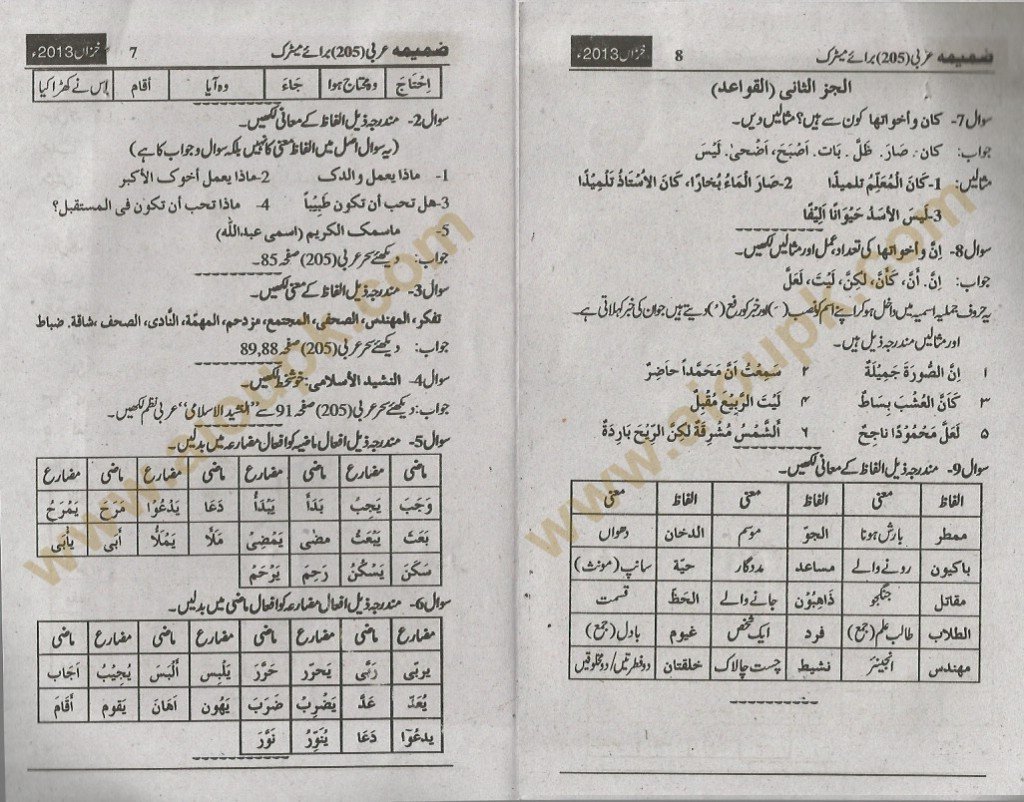 ضمیمه عربی (205) برائے میٹرک 7 خزاں 2013ء
اِحْتَاجَ وہ محتاج ہوا جَاءَ وہ آیا أقام اس نے کھڑا کیا
سوال 2- مندرجہ ذیل الفاظ کے معانی لکھیں۔
(یہ سوال اصل میں الفاظ معنی کا نہیں بلکہ سوال و جواب کا ہے)
1- ماذا يعمل والدک 2- ماذا يعمل أخوک الأكبر
3- هل تحب أن تكون طَبِيْبًا 4- ماذا تحب أن تكون فى المستقبل؟
5- ماسمک الكريم (اسمى عبدالله)
جواب: دیکھئے سحر عربی (205) صفحہ 85۔
سوال 3- مندرجہ ذیل الفاظ کے معنی لکھیں۔
تفكر، المهندس، الصحفى، المجتمع، مزدحم، المهمّة، النّادى، الصحف، شاقة. ضباط
جواب: دیکھئے سحر عربی (205) صفحہ 89,88
سوال 4- النشيد الأسلامى: خوشخط لکھیں۔
جواب: دیکھئے سحر عربی (205) صفحہ 91 سے "النشيد الاسلامى" عربی نظم لکھیں۔
سوال 5- مندرجہ ذیل افعال ماضیہ کو افعال مضارعہ میں بدلیں۔
ماضی مضارع ماضی مضارع ماضی مضارع ماضی مضارع
وَجَبَ يَجِبُ بَدَأَ يَبْدَأُ دَعَا يَدْعُوْا مَرَحَ يَمْرَحُ
بَعَثَ يَبْعَثُ مضٰى يَمْضِىْ مَلَأَ يَمْلَأُ أَبٰى يأبٰى
سَكَنَ يَسْكُنُ رَحِمَ يَرْحَمُ
سوال 6- مندرجہ ذیل افعال مضارعہ کو افعال ماضی میں بدلیں۔
مضارع ماضی مضارع ماضی مضارع ماضی مضارع ماضی
يربّى رَبّٰى يَحرّر حَرَّرَ يَلْبس ألْبَسَ يُجِيْبُ اَجَاب
يُعَدّ عَدَّ يَضْرِبُ ضَرَبَ يَهُون اَهَانَ يَقوم أَقَامَ
يدعُوْا دَعَا يُنَوِّرُ نَوَّرَ
ضمیمه عربی (205) برائے میٹرک 8 خزاں 2013ء
الجز الثانى (القواعد)
سوال 7- كان و أخواتها کون سے ہیں؟ مثالیں دیں۔
جواب: كان. صَارَ. ظَلَّ. بَات. اَصْبَحَ، اَضْحىٰ. لَيْسَ
مثالیں: 1- كَانَ الْمُعَلِّمُ تلميذًا 2- صَارَ الْمَاءُ بُخَارًا، كَانَ الأسْتَاذُ تَلْمِيذًا
3- لَيسَ الأسَدُ حَيْوَانًا اَلِيْفًا
سوال 8- اِنَّ و أخواتها کی تعداد، عمل اور مثالیں لکھیں۔
جواب: اِنَّ. أَنَّ، كَأَنَّ، لكِنَّ، لَيْتَ، لَعَلَّ
یہ حروف جملہ اسمیہ میں داخل ہو کر اپنے اسم کو نصب (َ) اور خبر کو رفع (ُ) دیتے ہیں جو ان کی خبر کہلاتی ہے۔
اور مثالیں مندرجہ ذیل ہیں۔
۱ اِنَّ الصُّورَةَ جَمِيْلَةٌ ۲ سَمِعْتُ اَنَّ مَحَمَّداً حَاضِرٌ
۳ كَأنَّ العُشْبَ بِسَاطٌ ۴ لَيْتَ الرَّبِيْعَ مُقْبِلٌ
۵ لَعَلَّ مَحْمُوْدًا ناجِحٌ ۶ اَلشَّمْسُ مُشْرِقَةٌ لكِنَّ الرِّيْحَ بَارِدَةٌ
سوال 9- مندرجہ ذیل الفاظ کے معانی لکھیں۔
الفاظ معنی الفاظ معنی الفاظ معنی
ممطر بارش ہونا الجوّ موسم الدخان دھواں
باكيون رونے والے مساعد مددگار حيّة سانپ (مونث)
مقاتل جنگجو ذَاهِبُوْن جانے والے الحَظّ قسمت
الطلاب طالب علم (جمع) فرد ایک شخص غيوم بادل (جمع)
مهندس انجینئر نشيط چست چالاک خلقتان دو فطرتیں/دو مخلوقیں
www.aioupk.com
www.aioupk.com